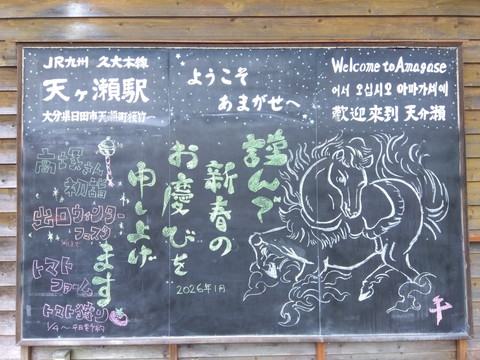 JR九州 久大本線
天ヶ瀬駅
大分県日田市天瀬町桜竹
ようこそ
あまがせへ
Welcome to Amagase
어서 오십시오 아마가세에
歡迎來到 天介瀬
謹んで
新春の
お慶びを
申し上げ
ます
2026年1月
高塚さん
初詣
出口ウィンター
フェスタ
トマト
ファーム
トマト狩り
午